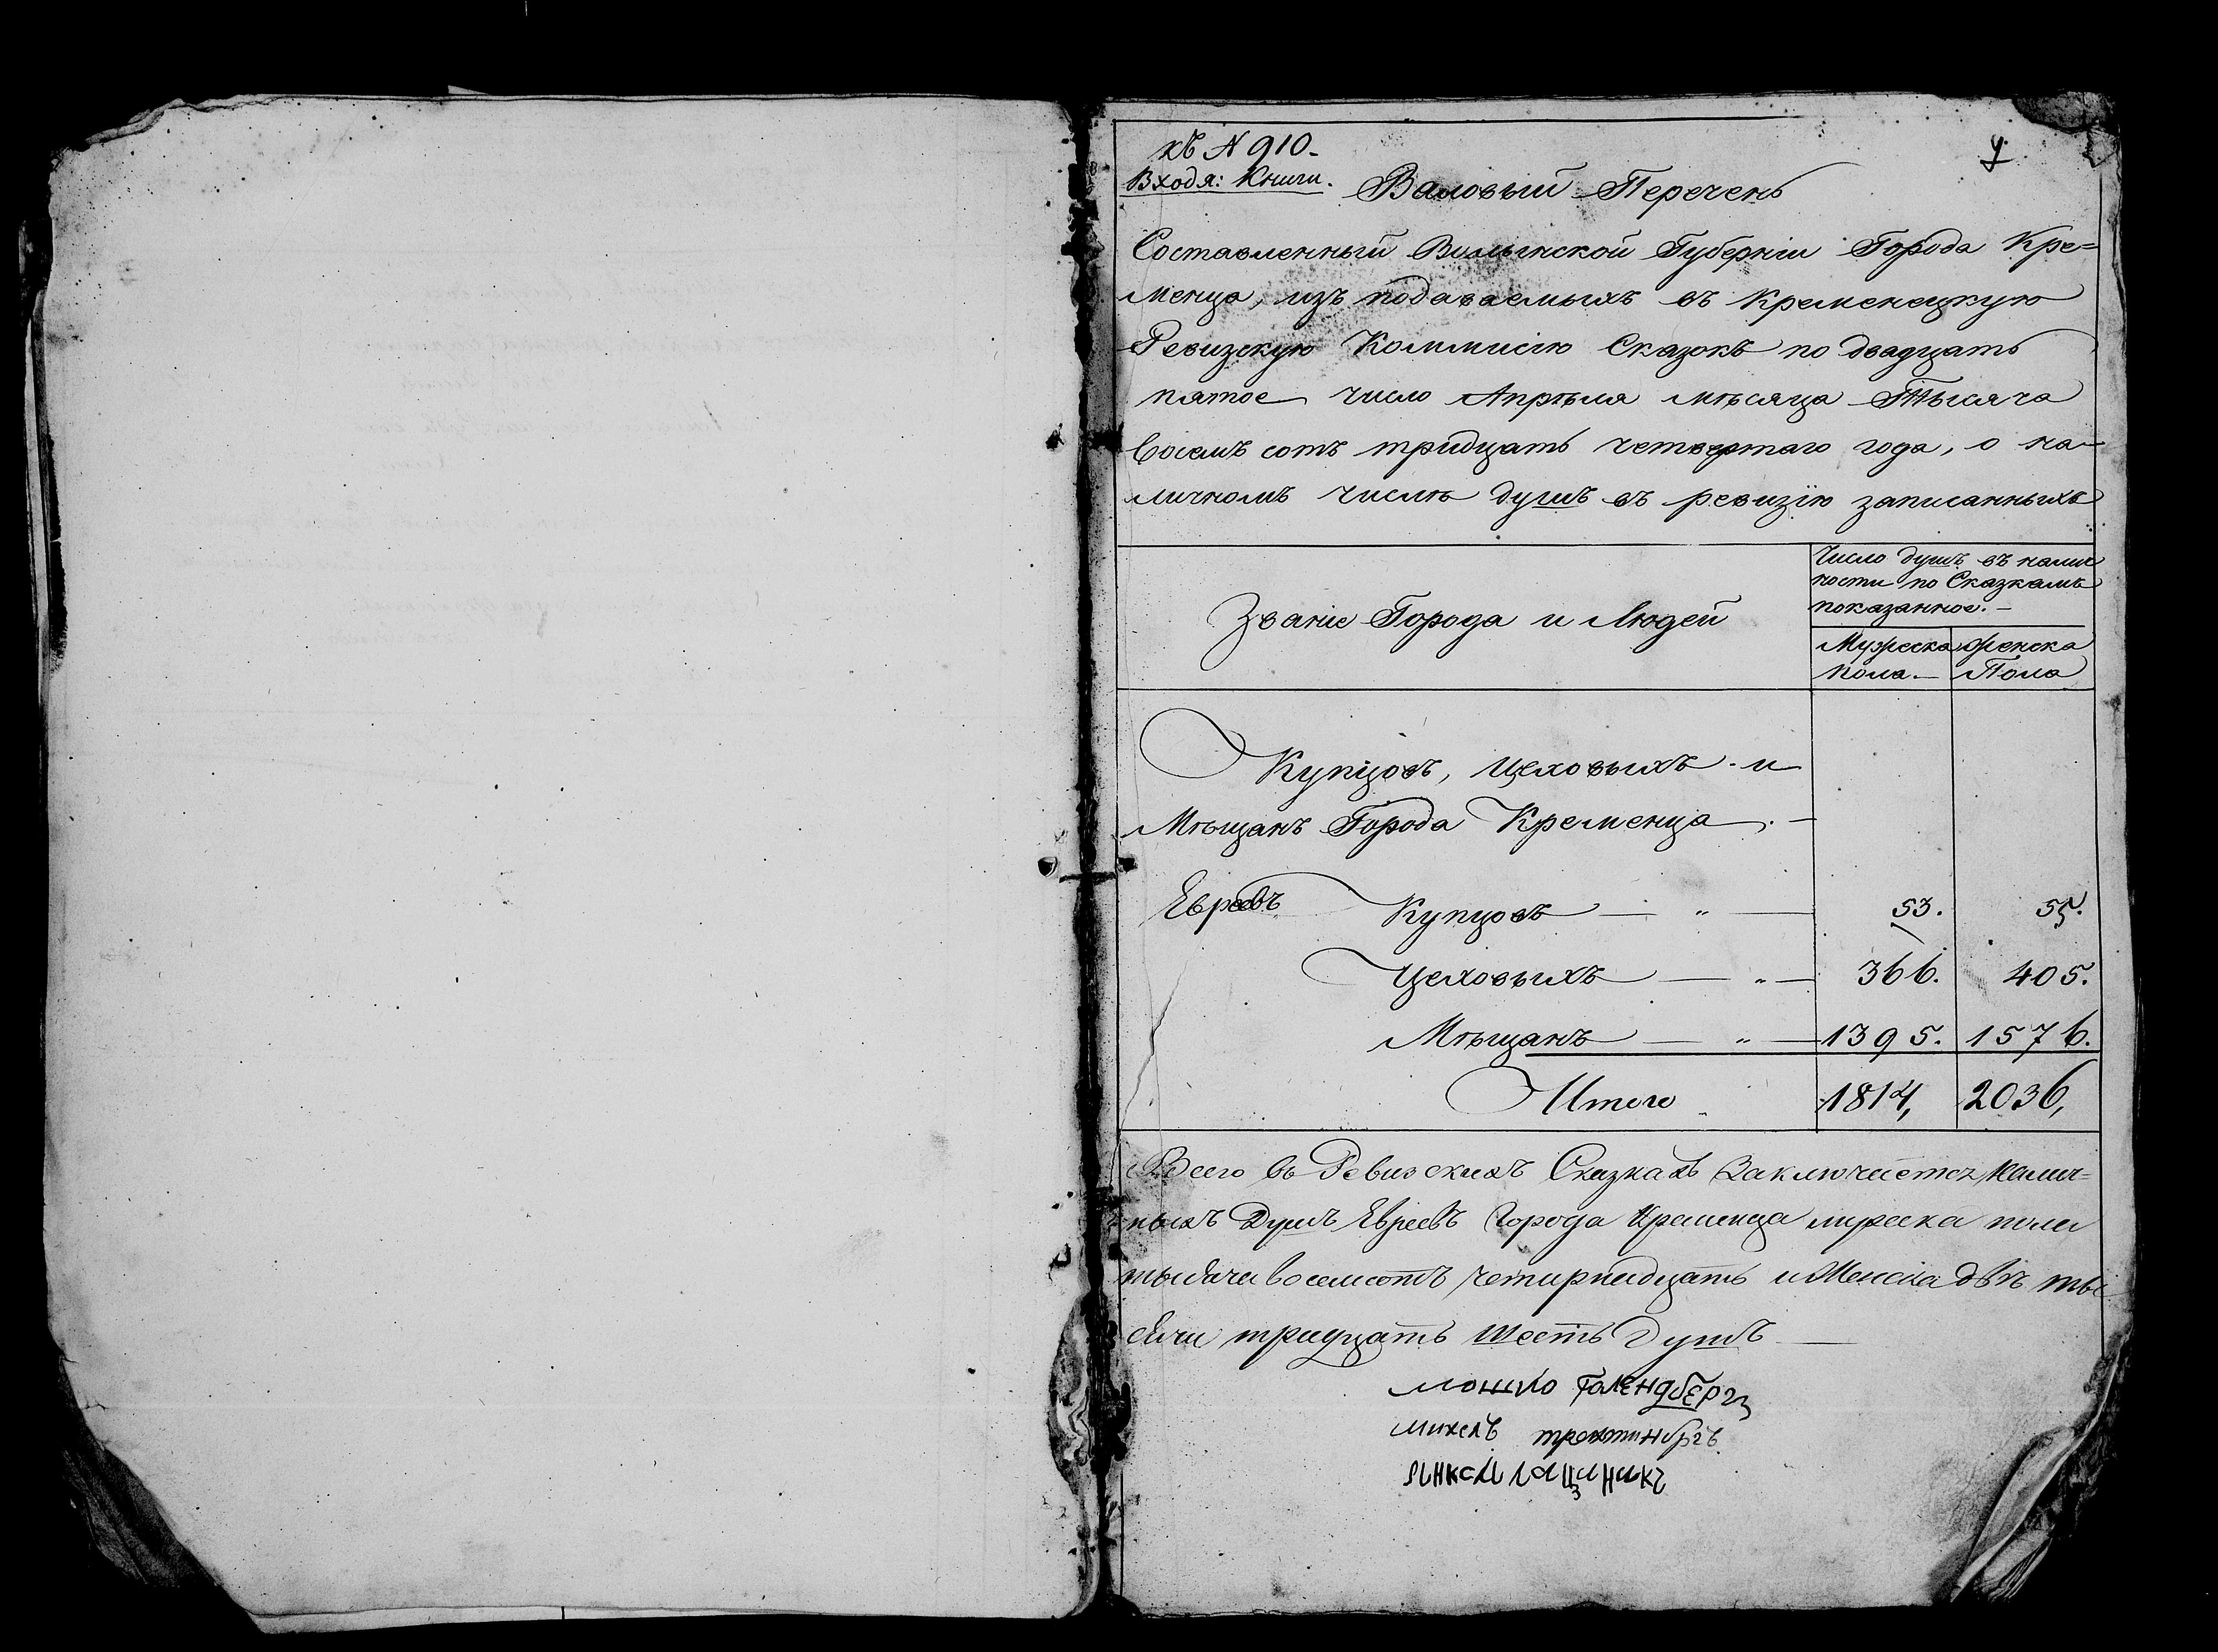 къ N 910.
Входя: Книги.
Валовый Перечень
Составленный Волынской Губерніи Города Кре=
менца, изъ подаваемыхъ въ Кременецкую
Ревизскую Коммисію Сказокъ по двадцать
пятое число Апрѣля мѣсяца Тысяча
восемъ сотъ тридцать четвертаго года, о на-
личномъ числѣ душъ въ ревизію записанныхъ
Званіе Города и Людей
Число душъ въ налич
ности по Сказкамъ
показанное. –
Мужеска
пола. –
Женска
Пола
Купцовъ, Цеховыхъ и
Мѣщанъ Города Кременца. –
Евреевъ Купцовъ — „ — 53. 55.
Цеховыхъ — „ — 366. 405.
Мѣщанъ — „ — 1395. 1576.
Итого 1814, 2036,
Всего въ Ревизскихъ Сказкахъ Заключается Налич=
ныхъ Душъ Евреевъ Города Кременца мужеска пола
тысяча восемсотъ четирнадцать и Женска двѣ ты
сячи тридцать шесть Душъ —
мошко Голендберг
михелъ